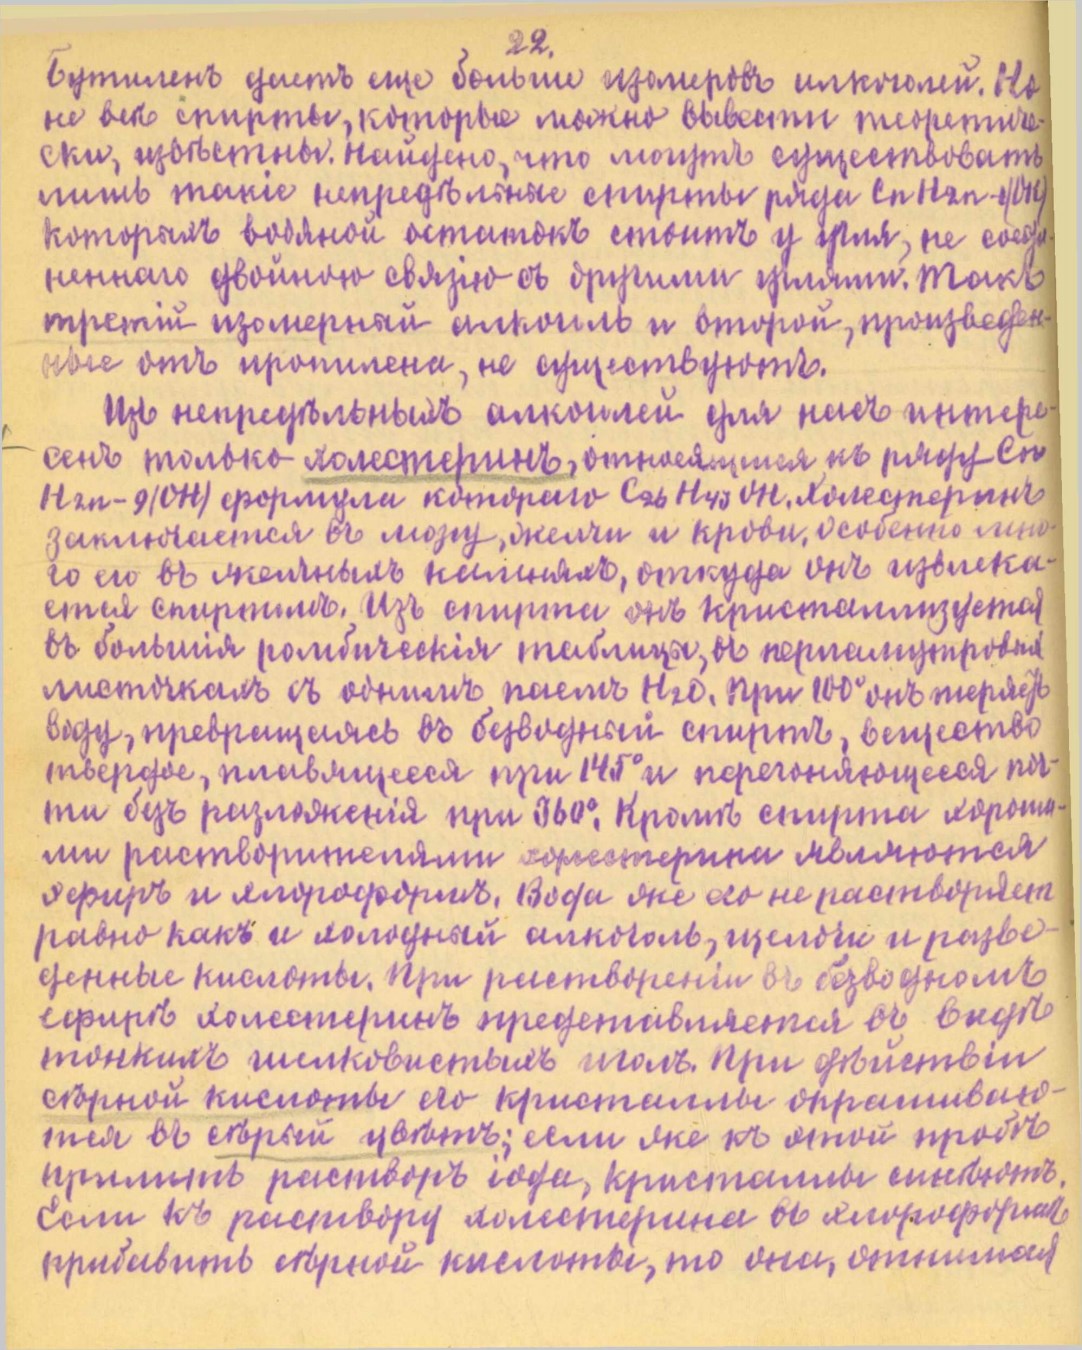 22.
Бутиленъ даетъ еще больше изомеровъ алкоголей. Но
не все спирты, которые можно вывести теоретиче-
ски, извѣстны. Найдено, что могутъ существовать
лишь такіе непредѣльные спирты ряда CnH2n-1(OH)
которыхъ водяной остатокъ стоитъ у угля, не соеди-
неннаго двойною связію съ другими углями. Такъ
третій изомерный алкоголь и второй, произведен-
ные отъ пропилена, не существуютъ.
Изъ непредѣльныхъ алкоголей для насъ интере-
сенъ только холестеринъ, относящійся къ ряду Cn
H2n-9(OH) формула котораго C26H43OH. Холестеринъ
заключается въ мозгу, желчи и крови. Особенно мно-
го его въ желчныхъ камняхъ, откуда онъ извлека-
ется спиртомъ. Изъ спирта онъ кристаллизуется
въ большія ромбическія таблицы, въ перламутровыя
листочкахъ съ однимъ паемъ H2O. При 100° онъ теряетъ
воду, превращаясь въ безводный спиртъ, вещество
твердое, плавящееся при 145° и перегоняющееся поч-
ти безъ разложенія при 360°. Кромѣ спирта хороши-
ми растворителями холестерина являются
эфиръ и хлороформъ. Вода же его не растворяет
равно какъ и холодный алкоголь, щелочи и разве-
денные кислоты. При раствореніи въ безводномъ
ефирѣ холестеринъ представляется въ видѣ
тонкихъ шелковистыхъ иголъ. При дѣйствіи
сѣрной кислоты его кристаллы окрашиваю-
тся въ сѣрый цвѣтъ; если же къ этой пробѣ
прилить растворъ іода, кристаллы синѣютъ.
Если къ раствору холестерина въ хлороформѣ
прибавить сѣрной кислоты, то она, отнимая